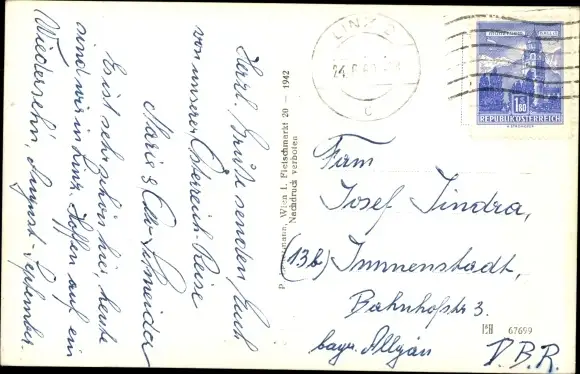 Herzl. Grüße senden Euch
von unserer Österreich-Reise
Maria & Otto Schneider
Es ist sehr schön hier, heute
sind wir in Linz. Hoffen auf ein
Wiedersehn August-September.
Wien I. Fleischmarkt 20 — 1942
Nachdruck verboten
LINZ 2
24.
C
1.80
REPUBLIK ÖSTERREICH
Fam
Josef Jindra,
(13b) Immenstadt,
Bahnhofstr 3.
bayr. Allgäu
D.B.R.
67699